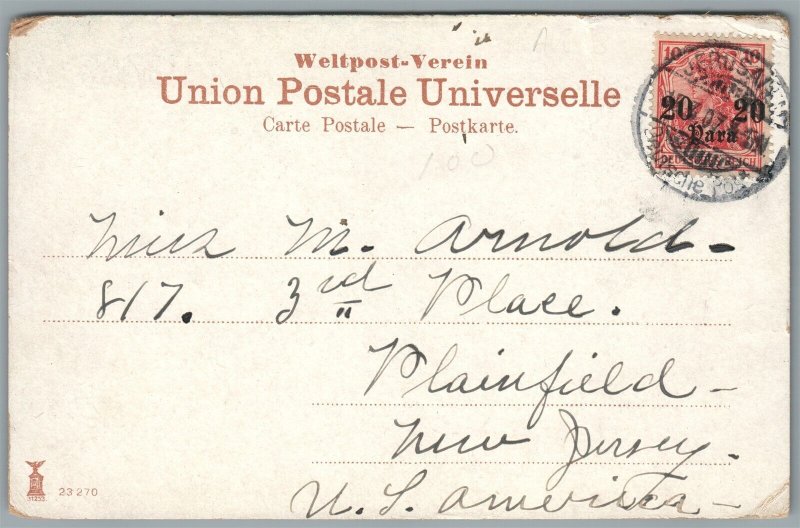 Weltpost-Verein
Union Postale Universelle
Carte Postale — Postkarte.
100
10 10
20 20
Para
JERUSALEM
07
Deutsche Post
Miss M. Arnold -
817. 3rd Place.
Plainfield -
New Jersey.
U. S. America -
23 270